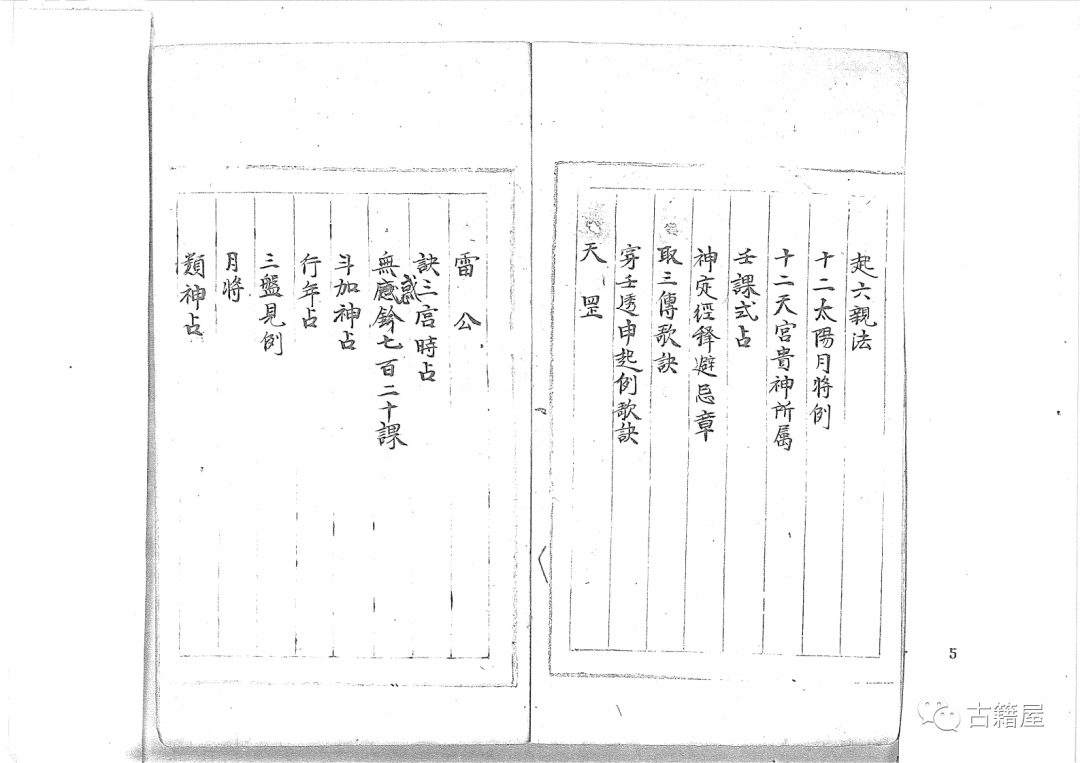 起六親法
十二太陽月將例
十二天宮貴神所屬
壬課式占
神定經釋避忌章
取三傳歌訣
穿壬透申起例歌訣
天罡
雷公
訣三宮時占
無應鈐七百二十課
惑
斗加神占
行年占
三盤見例
月將
類神占
5
古籍屋